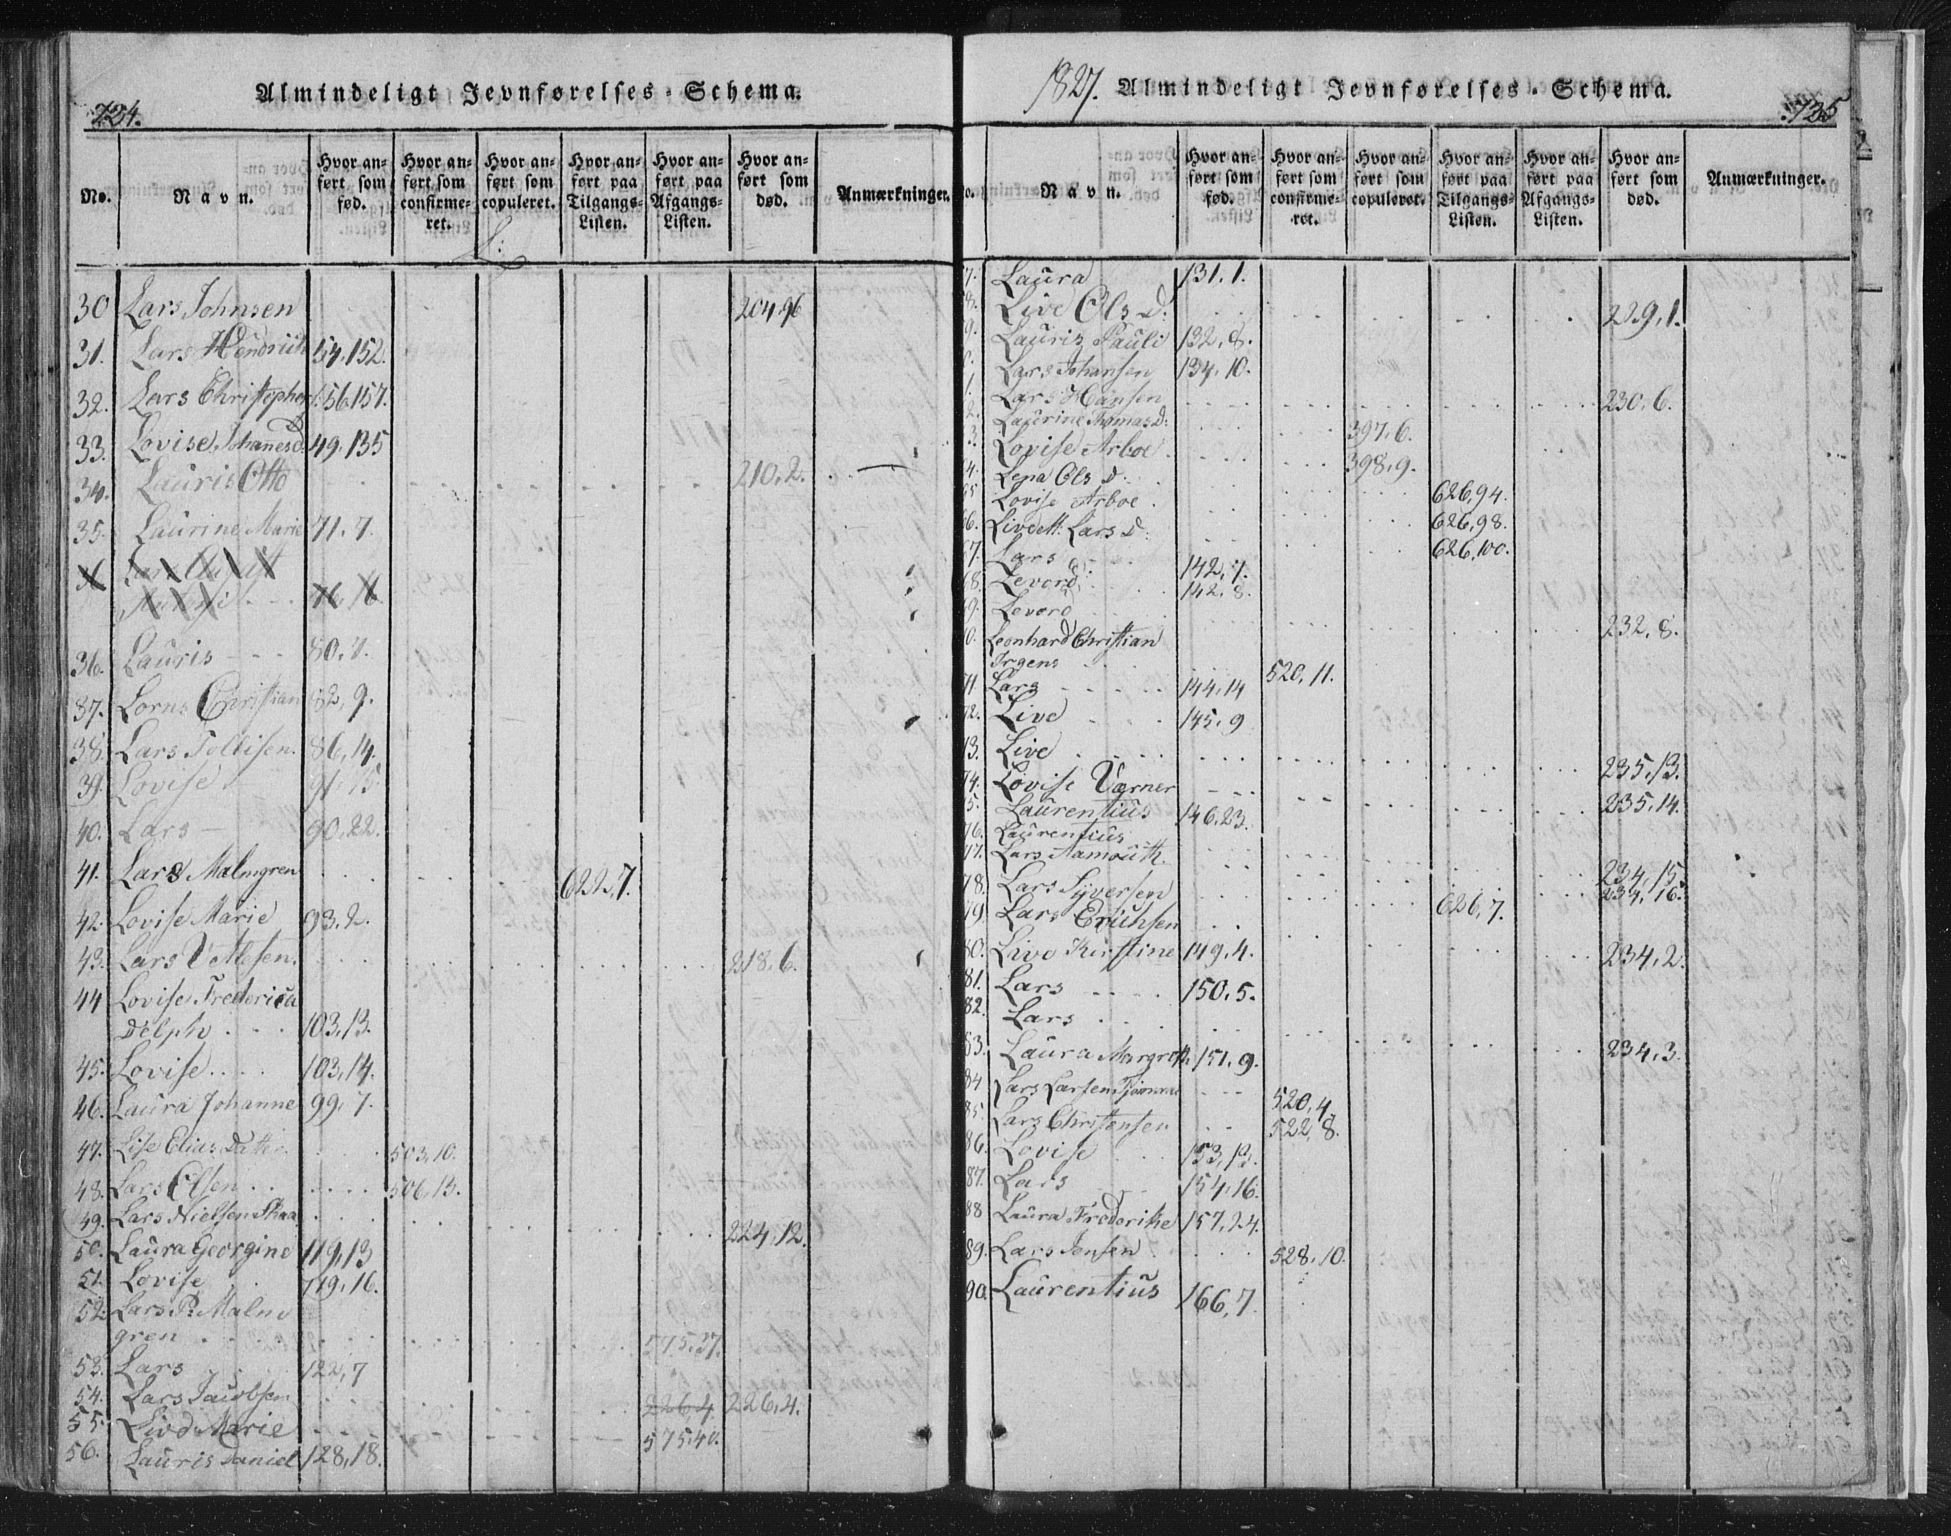 724.
Almindeligt Jevnførelses-Schema.
No.
Navn.
Hvor anført som fød.
Hvor anført som confirmeret.
Hvor anført som copuleret.
Hvor anført paa Tilgangs-Listen.
Hvor anført paa Afgangs-Listen.
Hvor anført som død.
Anmærkninger.
L:
30 Lars Johnsen 204,96
31. Lars Hendrich 54,152.
32. Lars Christopher 56,157.
33. Lovise Johanesd. 49,135
34. Lauris Otto 210,2.
35. Laurine Marie 71,7.
36. Lauris 80,
37. Lorns Christian 82,9.
38. Lars Tollisen. 86,14.
39. Lovise 91,15
40. Lars 90,22.
41. Lars Malmgren 622,7.
42. Lovise Marie 93,2.
43. Lars 218,6.
44 Lovise Frederica
Delph 103,13.
45. Lovise 103,14.
46. Laura Johanne 99,7.
47. Lise Elias Datter 503,10.
48. Lars Olsen 506,13.
49. Lars Nielsen Skaa 224,12.
50. Laura Georgine 119,13
51. Lovise 119,16.
52. Lars P. Malm
gren 575,37.
53. Lars 122,7
54. Lars Jacobsen 226,4 226,4.
55. Live Marie 575,40.
56. Lauris Daniel 128,18.
1827.
Almindeligt Jevnførelses-Schema.
725
No.
Navn.
Hvor anført som fød.
Hvor anført som confirmeret.
Hvor anført som copuleret.
Hvor anført paa Tilgangs-Listen.
Hvor anført paa Afgangs-Listen.
Hvor anført som død.
Anmærkninger.
7. Laura 131,1.
8. Live Ols D. 229,1.
9. Lauritz Pauli 132,8.
0. Lars Johansen 134,10.
1. Lars Hansen 230,6.
2. Laurine Thomas D: 397,6.
3. Lovise Arboe 398,9.
64. Lena Ols D. 626,94.
65 Lovise Arboe 626,98.
66. Live M. Lars D. 626,100.
67. Lars 142,7.
68. Levord 142,8.
69. Levord 232,8.
70. Leonhard Christian
Irgens 520,11.
71 Lars 144,14
72. Live 145,9
73. Live 235,13.
74. Lovise Værner 235,14.
75. Laurentius 146,23.
76. Laurentius 234,15.
77. Lars Aamouth 234,16.
78. Lars Syversen 626,7.
79. Lars Erichsen 234,2.
80. Live Kirstine 149,4.
81. Lars 150,5.
82. Lars 234,3.
83. Laura Margreth 151,9.
84 Lars Larsen 520,4
85. Lars Christensen 522,8.
86. Lovise 153,13.
87. Lars 154,16.
88 Laura Frederike 157,24.
89. Lars Jensen 528,10.
90. Laurentius 166,7.